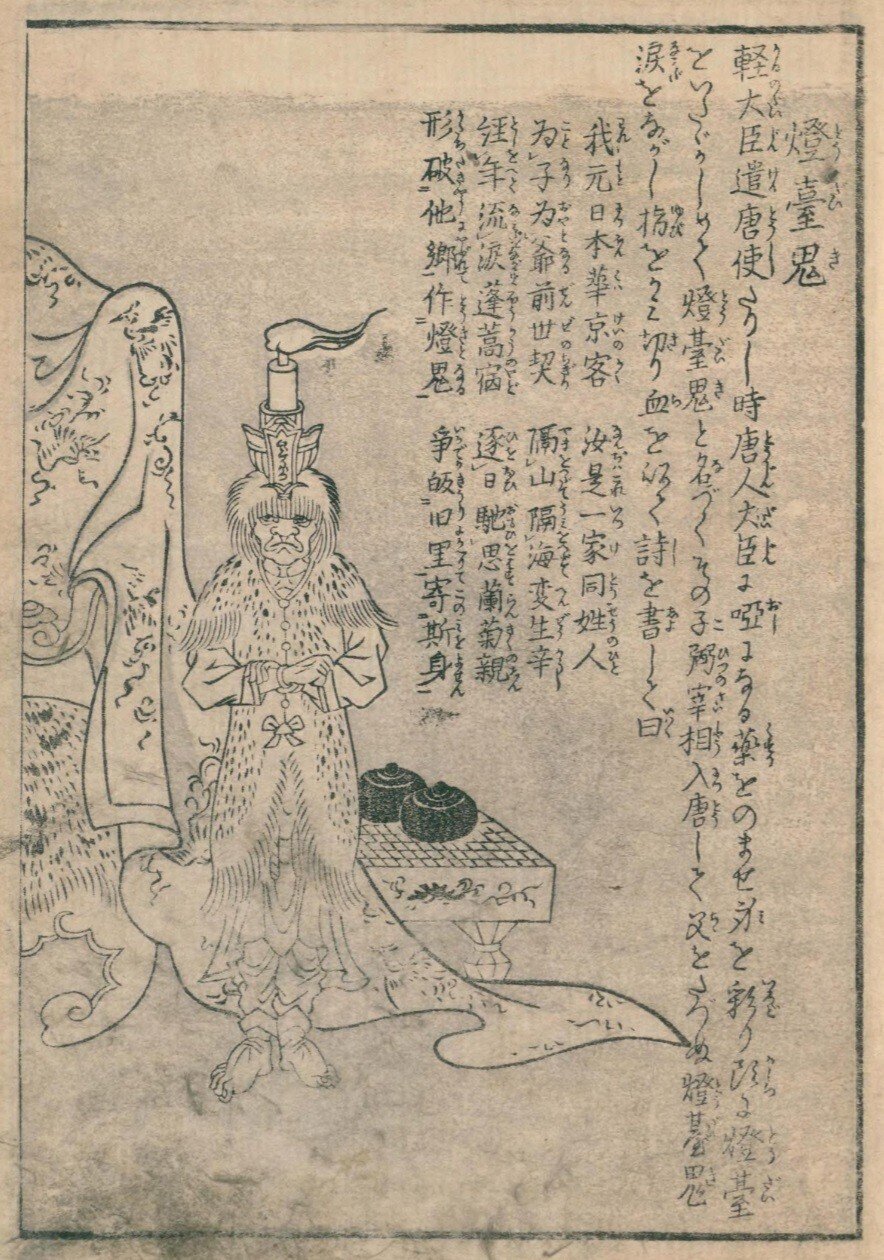 燈臺鬼
軽大臣遣唐使たりし時唐人大臣に唖になる薬をのませ身を彩り頭に燈臺
をいたゞかしめて燈臺鬼と名づくその子弼宰相入唐して父をたづぬ燈臺鬼
涙をながし指をかみ切り血を以て詩を書して曰
我元日本華京客　汝是一家同姓人
為子為爺前世契　隔山隔海変生辛
経年流涙蓬蒿宿　逐日馳思蘭菊親
形破他郷作燈鬼　争皈旧里寄斯身